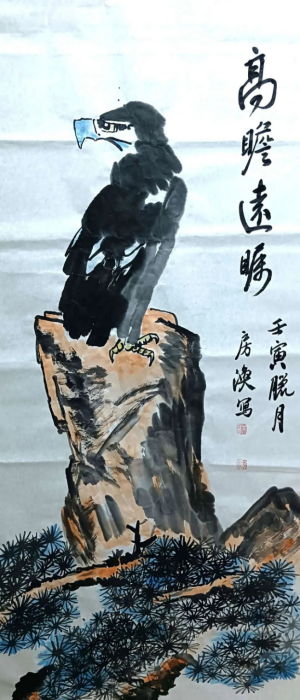 高瞻遠瞩
壬寅臘月
房渙寫